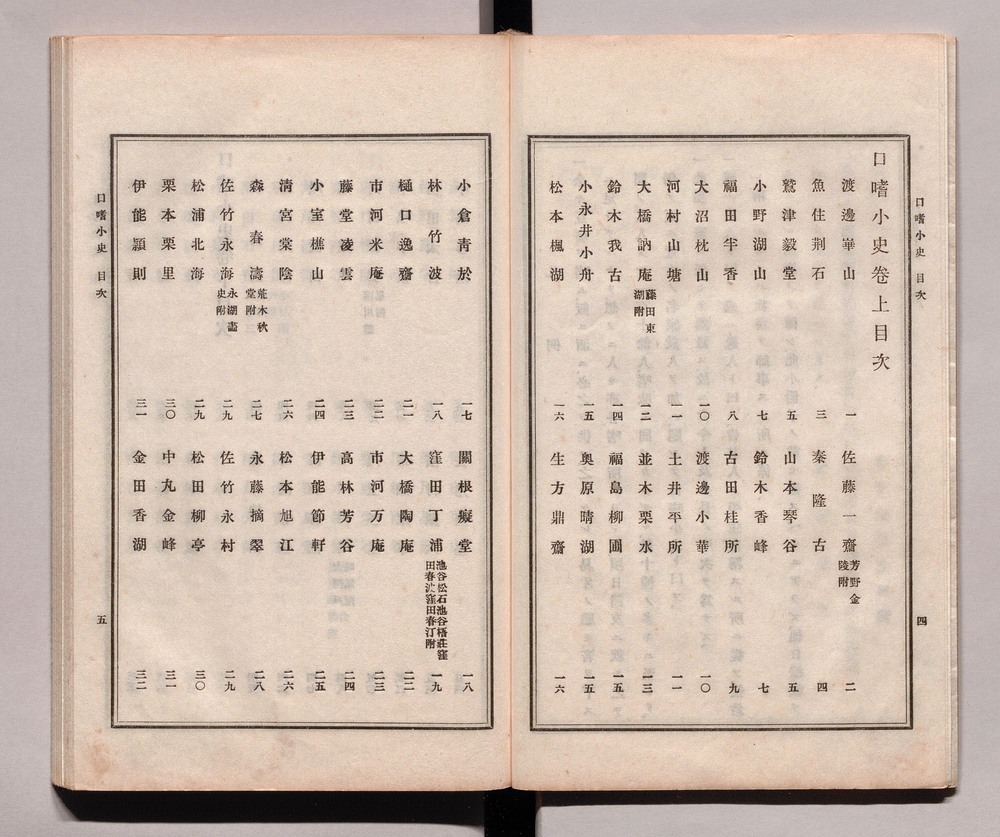 口嗜小史 目次
四
口嗜小史卷上目次
渡邊崋山 一
佐藤一齋 芳野金陵附 二
魚住荆石 三
秦隆古 四
鷲津毅堂 五
山本琴谷 五
小野湖山 七
鈴木香峰 七
福田半香 八
古田桂所 九
大沼枕山 一〇
渡邊小華 一〇
河村山塘 一一
土井平所 一一
大橋訥庵 藤田東湖附 一二
並木栗水 一三
鈴木我古 一四
福島柳圃 一五
小永井小舟 一五
奧原晴湖 一五
松本楓湖 一六
生方鼎齋 一六
小倉青於 一七
關根癡堂 一八
林竹波 一八
窪田丁浦 池谷松石池谷梧莊窪田春汀窪田春汀附 一九
樋口逸齋 二一
大橋陶庵 二二
市河米庵 二二
市河万庵 二三
藤堂凌雲 二三
高林芳谷 二四
小室樵山 二四
伊能節軒 二五
淸宮棠陰 二六
松本旭江 二六
森春濤 荒木秋堂附 二七
永藤摘翠 二八
佐竹永海 永湖畵史附 二九
佐竹永村 二九
松浦北海 二九
松田柳亭 三〇
栗本栗里 三〇
中丸金峰 三一
伊能穎則 三一
金田香湖 三二
口嗜小史 目次
五